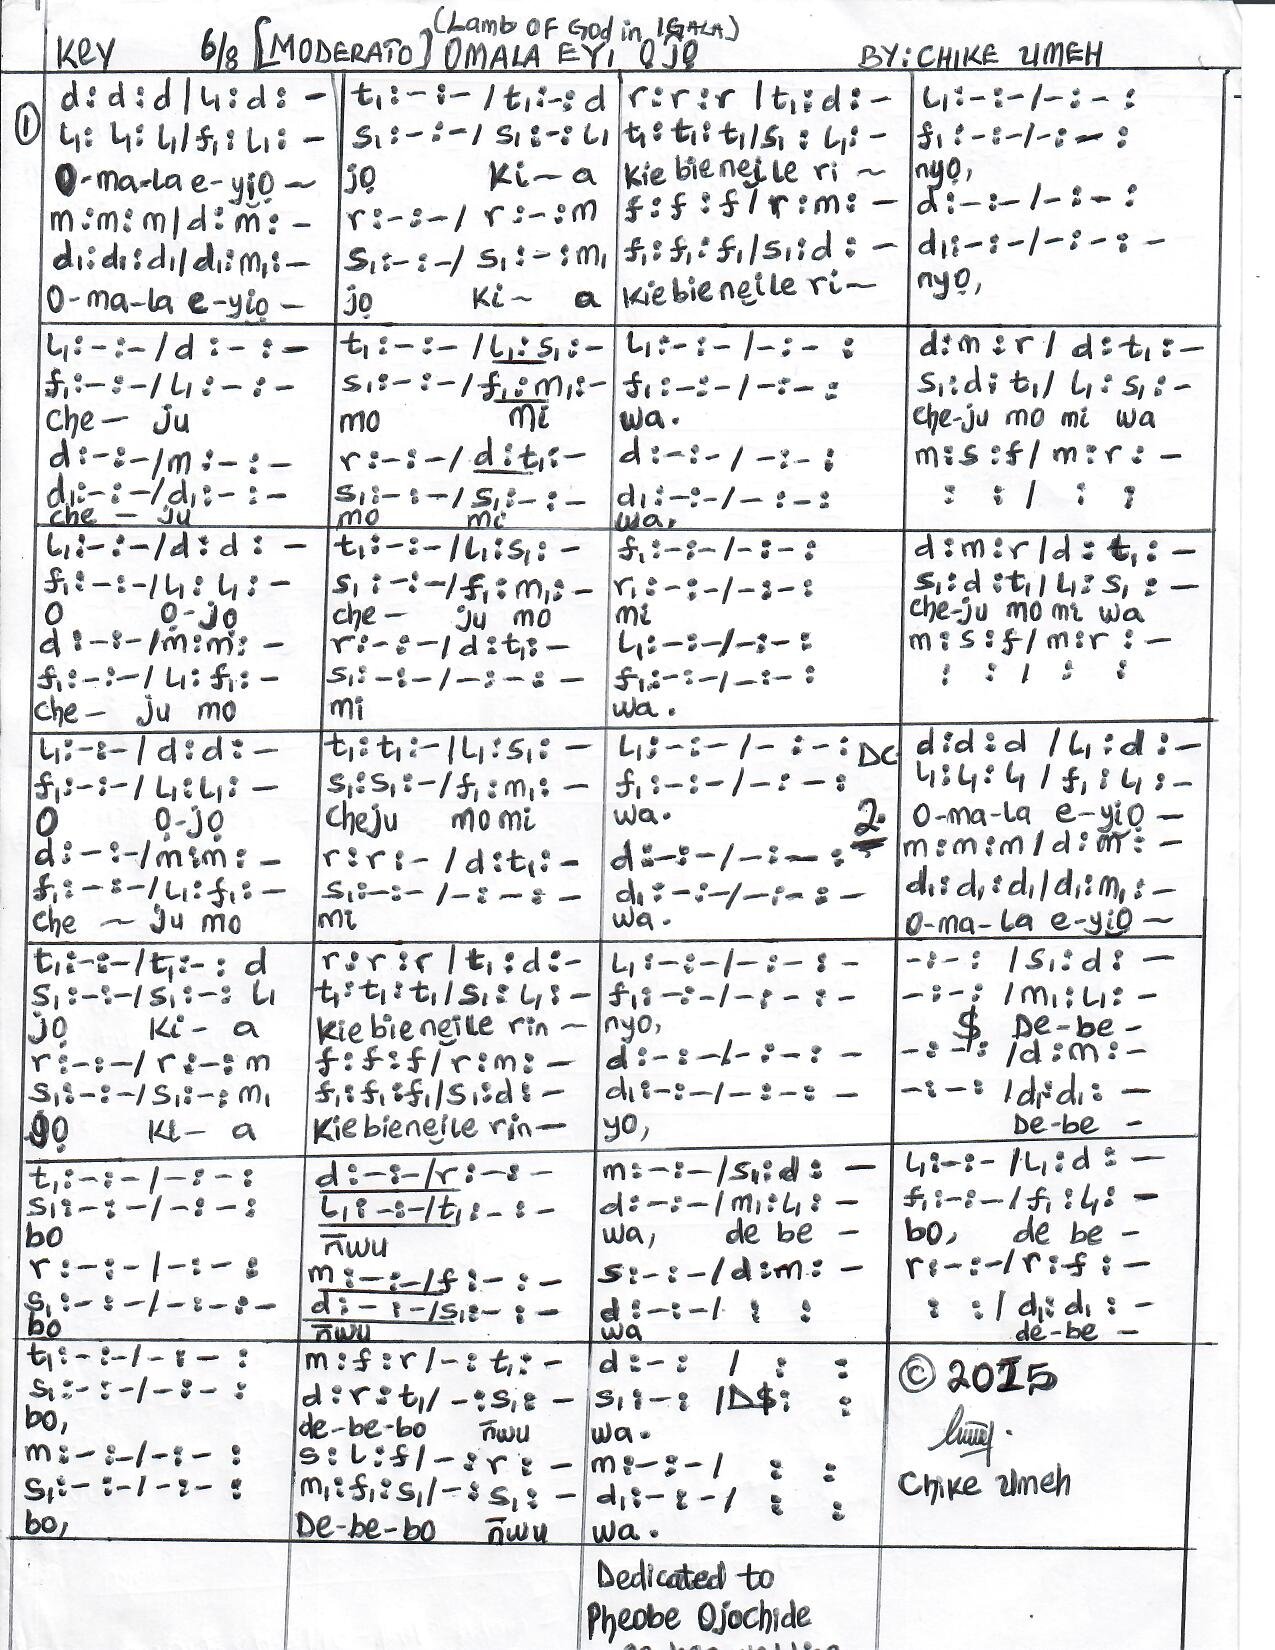 (Lamb OF God in IGALA)
Key 6/8 [MODERATO] OMALA EYI ỌJỌ BY: CHIKE UMEH
①
d:d:d/l₁:d:- t₁:-:-/t₁:-:d r:r:r/t₁:d:- l₁:-:-/-:-:
l₁:l₁:l₁/f₁:l₁:- s₁:-:-/s₁:-:l₁ t₁:t₁:t₁/s₁:l₁:- f₁:-:-/-:-:
O-ma-la e-yiọ ~ jọ Ki-a Kie bie nẹile ri ~ nyọ,
m:m:m/d:m:- r:-:-/r:-:m f:f:f/r:m:- d:-:-/-:-:
d₁:d₁:d₁/d₁:m₁:- s₁:-:-/s₁:-:m₁ f₁:f₁:f₁/s₁:d:- d₁:-:-/-:-:-
O-ma-la e-yiọ - jọ Ki~ a Kie bie nẹile ri~ nyọ,
l₁:-:-/d:-:- t₁:-:-/l₁:s₁:- l₁:-:-/-:-: d:m:r/d:t₁:-
f₁:-:-/l₁:-:- s₁:-:-/f₁:m₁:- f₁:-:-/-:-: s₁:d:t₁/l₁:s₁:-
che - ju mo mi wa. che-ju mo mi wa
d:-:-/m:-:- r:-:-/d:t₁:- d:-:-/-:-: m:s:f/m:r:-
d₁:-:-/d₁:-:- s₁:-:-/s₁:-:- d₁:-:-/-:-:- : : / : :
che - ju mo mi wa,
l₁:-:-/d:d:- t₁:-:-/l₁:s₁:- f₁:-:-/-:-: d:m:r/d:t₁:-
f₁:-:-/l₁:l₁:- s₁:-:-/f₁:m₁:- r₁:-:-/-:-: s₁:d:t₁/l₁:s₁:-
O Ọ-jọ che - ju mo mi che-ju mo mi wa
d:-:-/m:m:- r:-:-/d:t₁:- l₁:-:-/-:-: m:s:f/m:r:-
f₁:-:-/l₁:f₁:- s₁:-:-/-:-:- f₁:-:-/-:-: : : / : :
che - ju mo mi wa.
l₁:-:-/d:d:- t₁:t₁:-/l₁:s₁:- l₁:-:-/-:-: DC d:d:d/l₁:d:-
f₁:-:-/l₁:l₁:- s₁:s₁:-/f₁:m₁:- f₁:-:-/-:-: l₁:l₁:l₁/f₁:l₁:-
O Ọ-jọ cheju mo mi wa. 2. O-ma-la e-yiọ -
d:-:-/m:m:- r:r:-/d:t₁:- d:-:-/-:-: m:m:m/d:m:-
f₁:-:-/l₁:f₁:- s₁:-:-/-:-:- d₁:-:-/-:-:- d₁:d₁:d₁/d₁:m₁:-
che ~ ju mo mi wa. O-ma-la e-yiọ ~
t₁:-:-/t₁:-:d r:r:r/t₁:d:- l₁:-:-/-:-:- -:-:/s₁:d:-
s₁:-:-/s₁:-:l₁ t₁:t₁:t₁/s₁:l₁:- f₁:-:-/-:-:- -:-:/m₁:l₁:-
jọ Ki-a Kie bie nẹile rin ~ nyọ, $ De-be -
r:-:-/r:-:m f:f:f/r:m:- d:-:-/-:-:- -:-:/d:m:-
s₁:-:-/s₁:-:m₁ f₁:f₁:f₁/s₁:d:- d₁:-:-/-:-:- -:-:/d₁:d₁:-
jọ Ki-a Kie bie nẹile rin- yo, De-be -
t₁:-:-/-:-: d:-:-/r:-:- m:-:-/s₁:d:- l₁:-:-/l₁:d:-
s₁:-:-/-:-: l₁:-:-/t₁:-:- d:-:-/m₁:l₁:- f₁:-:-/f₁:l₁:-
bo n̄wu wa, de be - bo, de be -
r:-:-/-:-: m:-:-/f:-:- s:-:-/d:m:- r:-:-/r:f:-
s₁:-:-/-:-:- d:-:-/s₁:-:- d:-:-/ : : : :/d₁:d₁:-
bo n̄wu wa de-be -
t₁:-:-/-:-: m:f:r/-:t₁:- d:-:/ : : © 2015
s₁:-:-/-:-: d:r:t₁/-:s₁:- s₁:-:/D$: :
bo, de-be-bo n̄wu wa.
m:-:-/-:-: s:l:f/-:r:- m:-:-/ : : Chike Umeh
s₁:-:-/-:-: m₁:f₁:s₁/-:s₁:- d₁:-:-/ : :
bo, De-be-bo n̄wu wa.
Dedicated to
Pheobe Ojochide